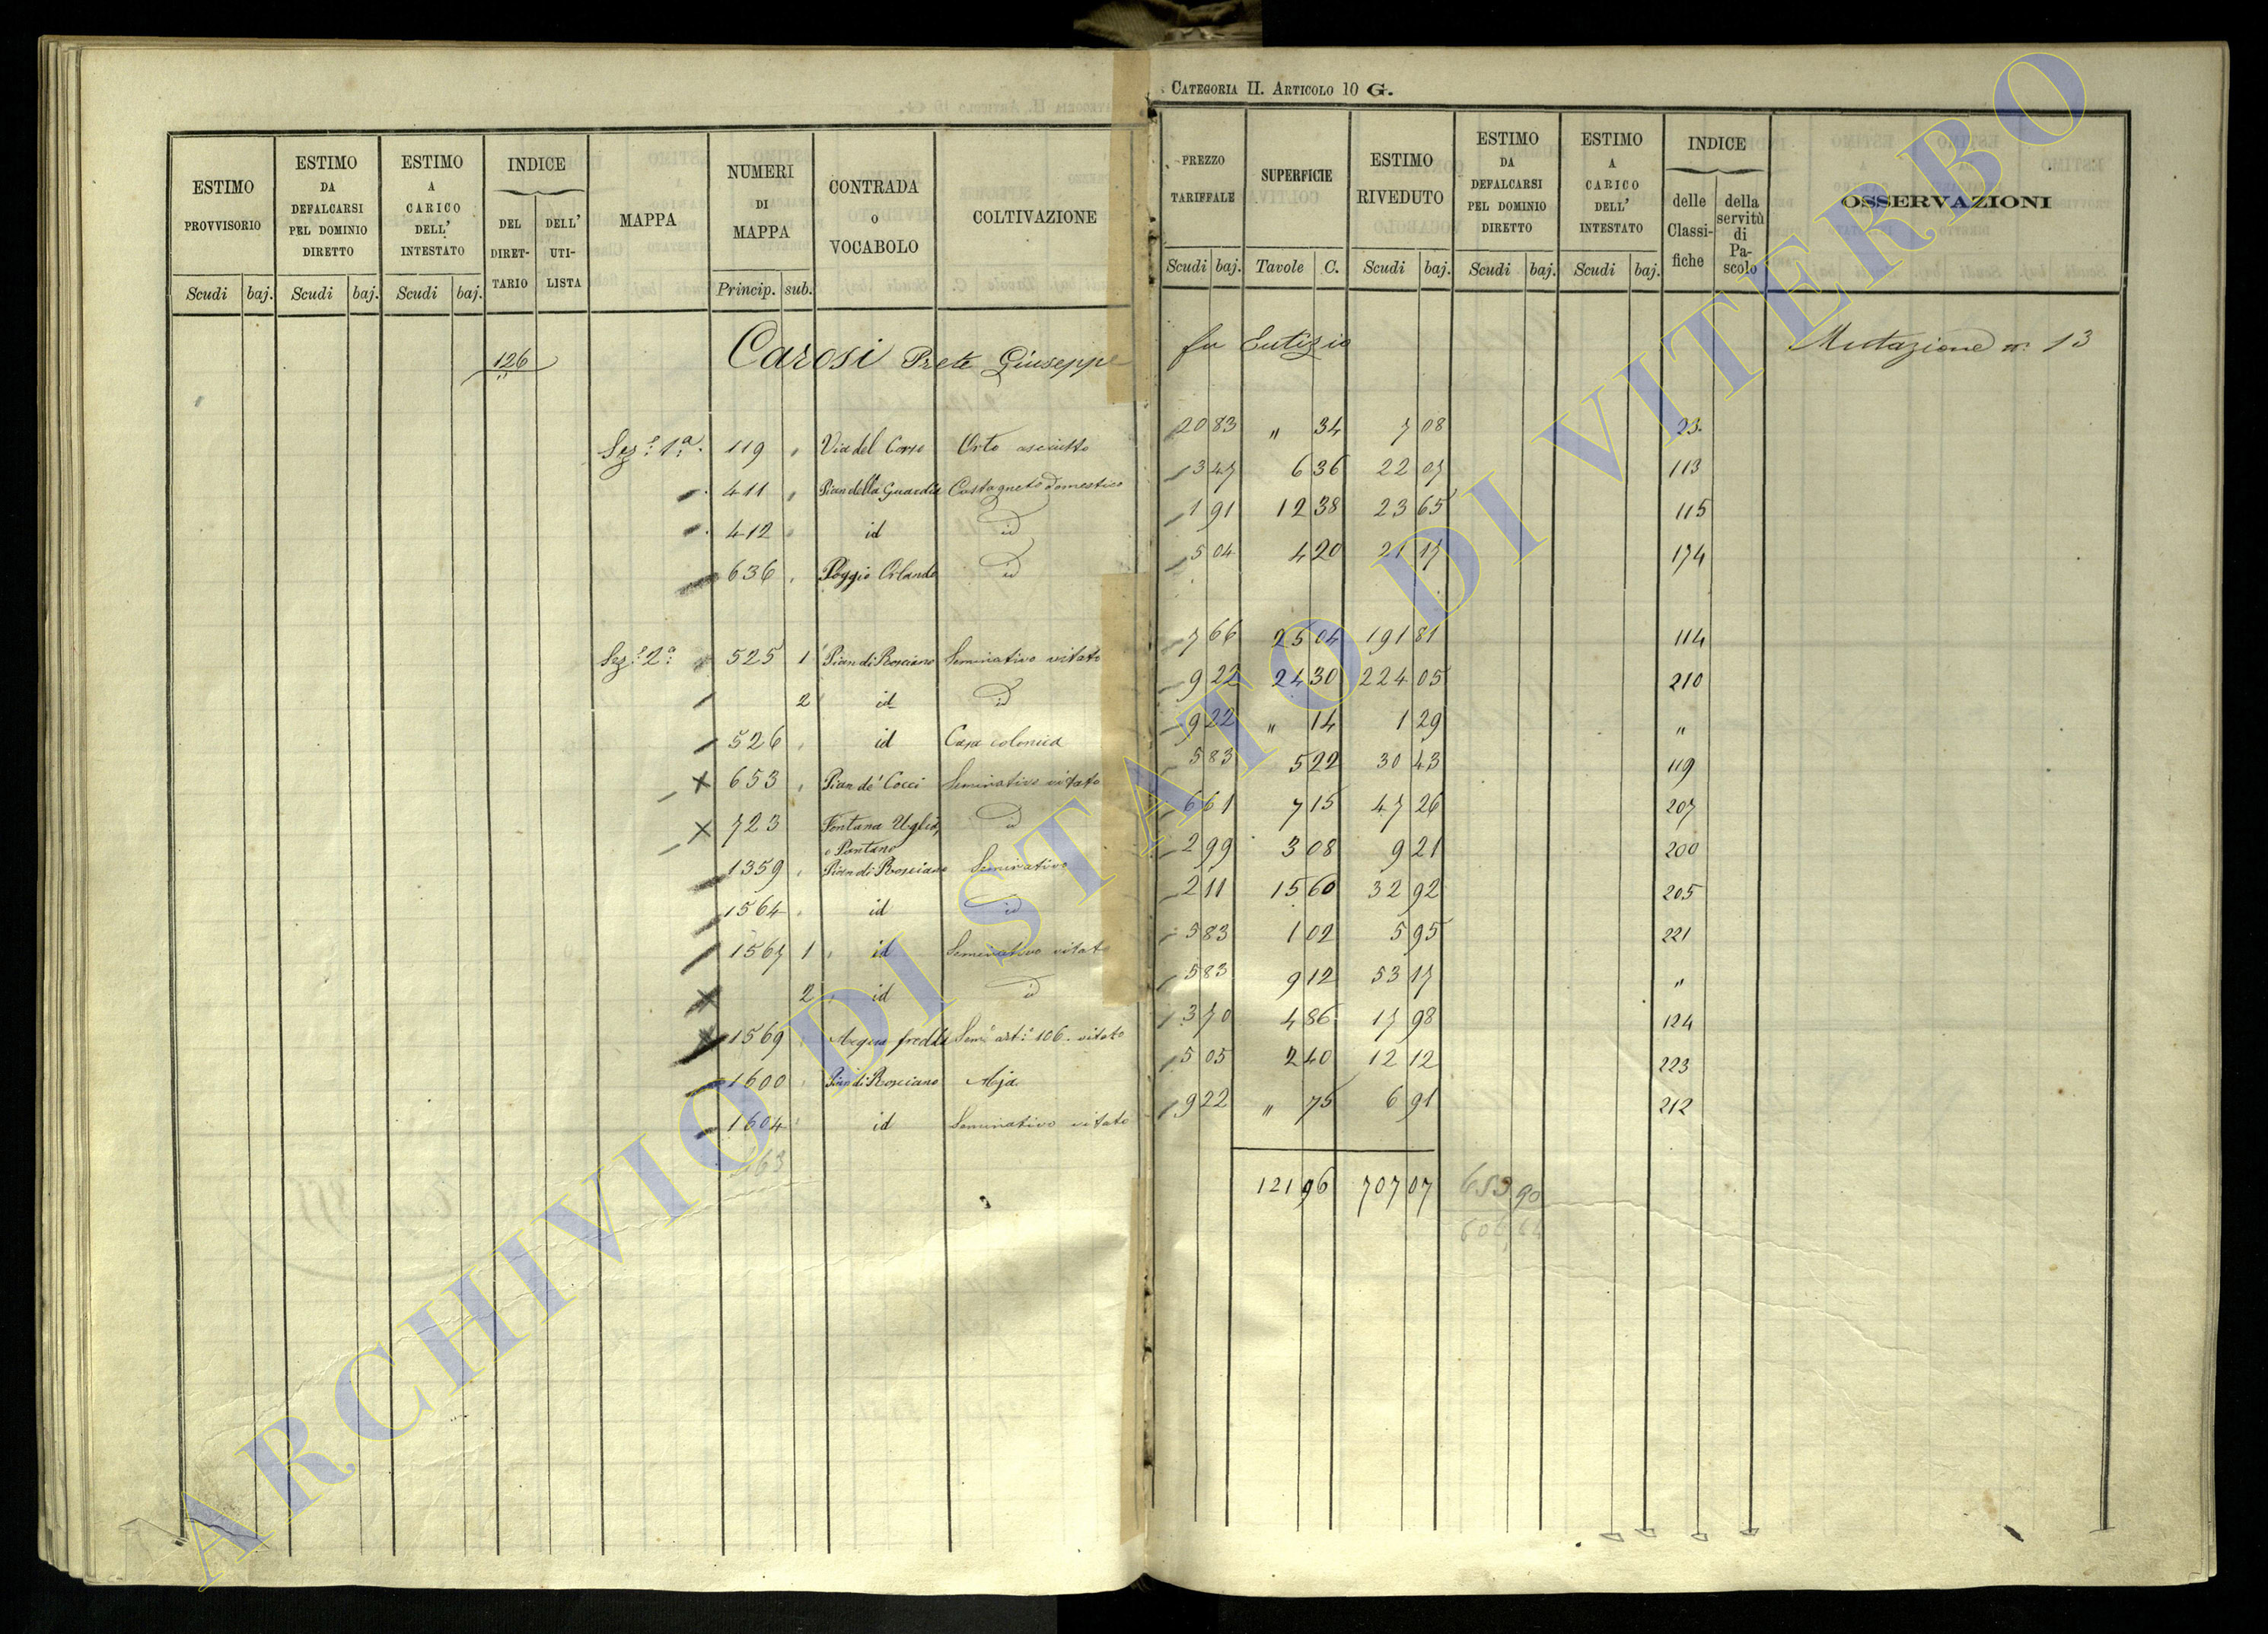 CATEGORIA II. ARTICOLO 10 G.
ESTIMO PROVVISORIO
ESTIMO DA DEFALCARSI PEL DOMINIO DIRETTO
ESTIMO A CARICO DELL' INTESTATO
INDICE
DEL DIRET-TARIO
DELL' UTI-LISTA
MAPPA
NUMERI DI MAPPA
CONTRADA O VOCABOLO
COLTIVAZIONE
PREZZO TARIFFALE
SUPERFICIE
ESTIMO RIVEDUTO
ESTIMO DA DEFALCARSI PEL DOMINIO DIRETTO
ESTIMO A CARICO DELL' INTESTATO
INDICE
delle Classi-fiche
della servitù di Pa-scolo
OSSERVAZIONI
Scudi baj. Scudi baj. Scudi baj. Princip. sub. Scudi baj. Tavole C. Scudi baj. Scudi baj. Scudi baj.
126 Carosi Prete Giuseppe fu Eutizio Mutazione n. 13
Sez.e 1a. 119 " Via del Corso Orto asciutto 20 83 " 34 7 08 23
411 " Pian della Guardia Castagneto domestico 3 47 6 36 22 07 113
412 " id id 1 91 12 38 23 65 115
636 " Poggio Orlando id 5 04 4 20 21 17 174
Sez.e 2a 525 1 Pian di Rosciano Seminativo vitato 7 66 25 04 191 81 114
2 id id 9 22 24 30 224 05 210
526 " id Casa colonica 9 22 " 14 1 29 "
653 " Pian de' Cocci Seminativo vitato 5 83 5 22 30 43 119
723 Fontana Uglia, o Pantano id 6 61 7 15 47 26 207
1359 " Pian di Rosciano Seminativo 2 99 3 08 9 21 200
1564 " id id 2 11 15 60 32 92 205
1567 1 " id Seminativo vitato 5 83 1 02 5 95 221
2 " id id 5 83 9 12 53 17 "
1569 " Acqua fredda Sem.o art.o 106. vitato 3 70 4 86 17 98 124
1600 " Pian di Rosciano Aja 5 05 2 40 12 12 223
1604 " id Seminativo vitato 9 22 " 75 6 91 212
121 96 707 07 653 90
606 64
ARCHIVIO DI STATO DI VITERBO